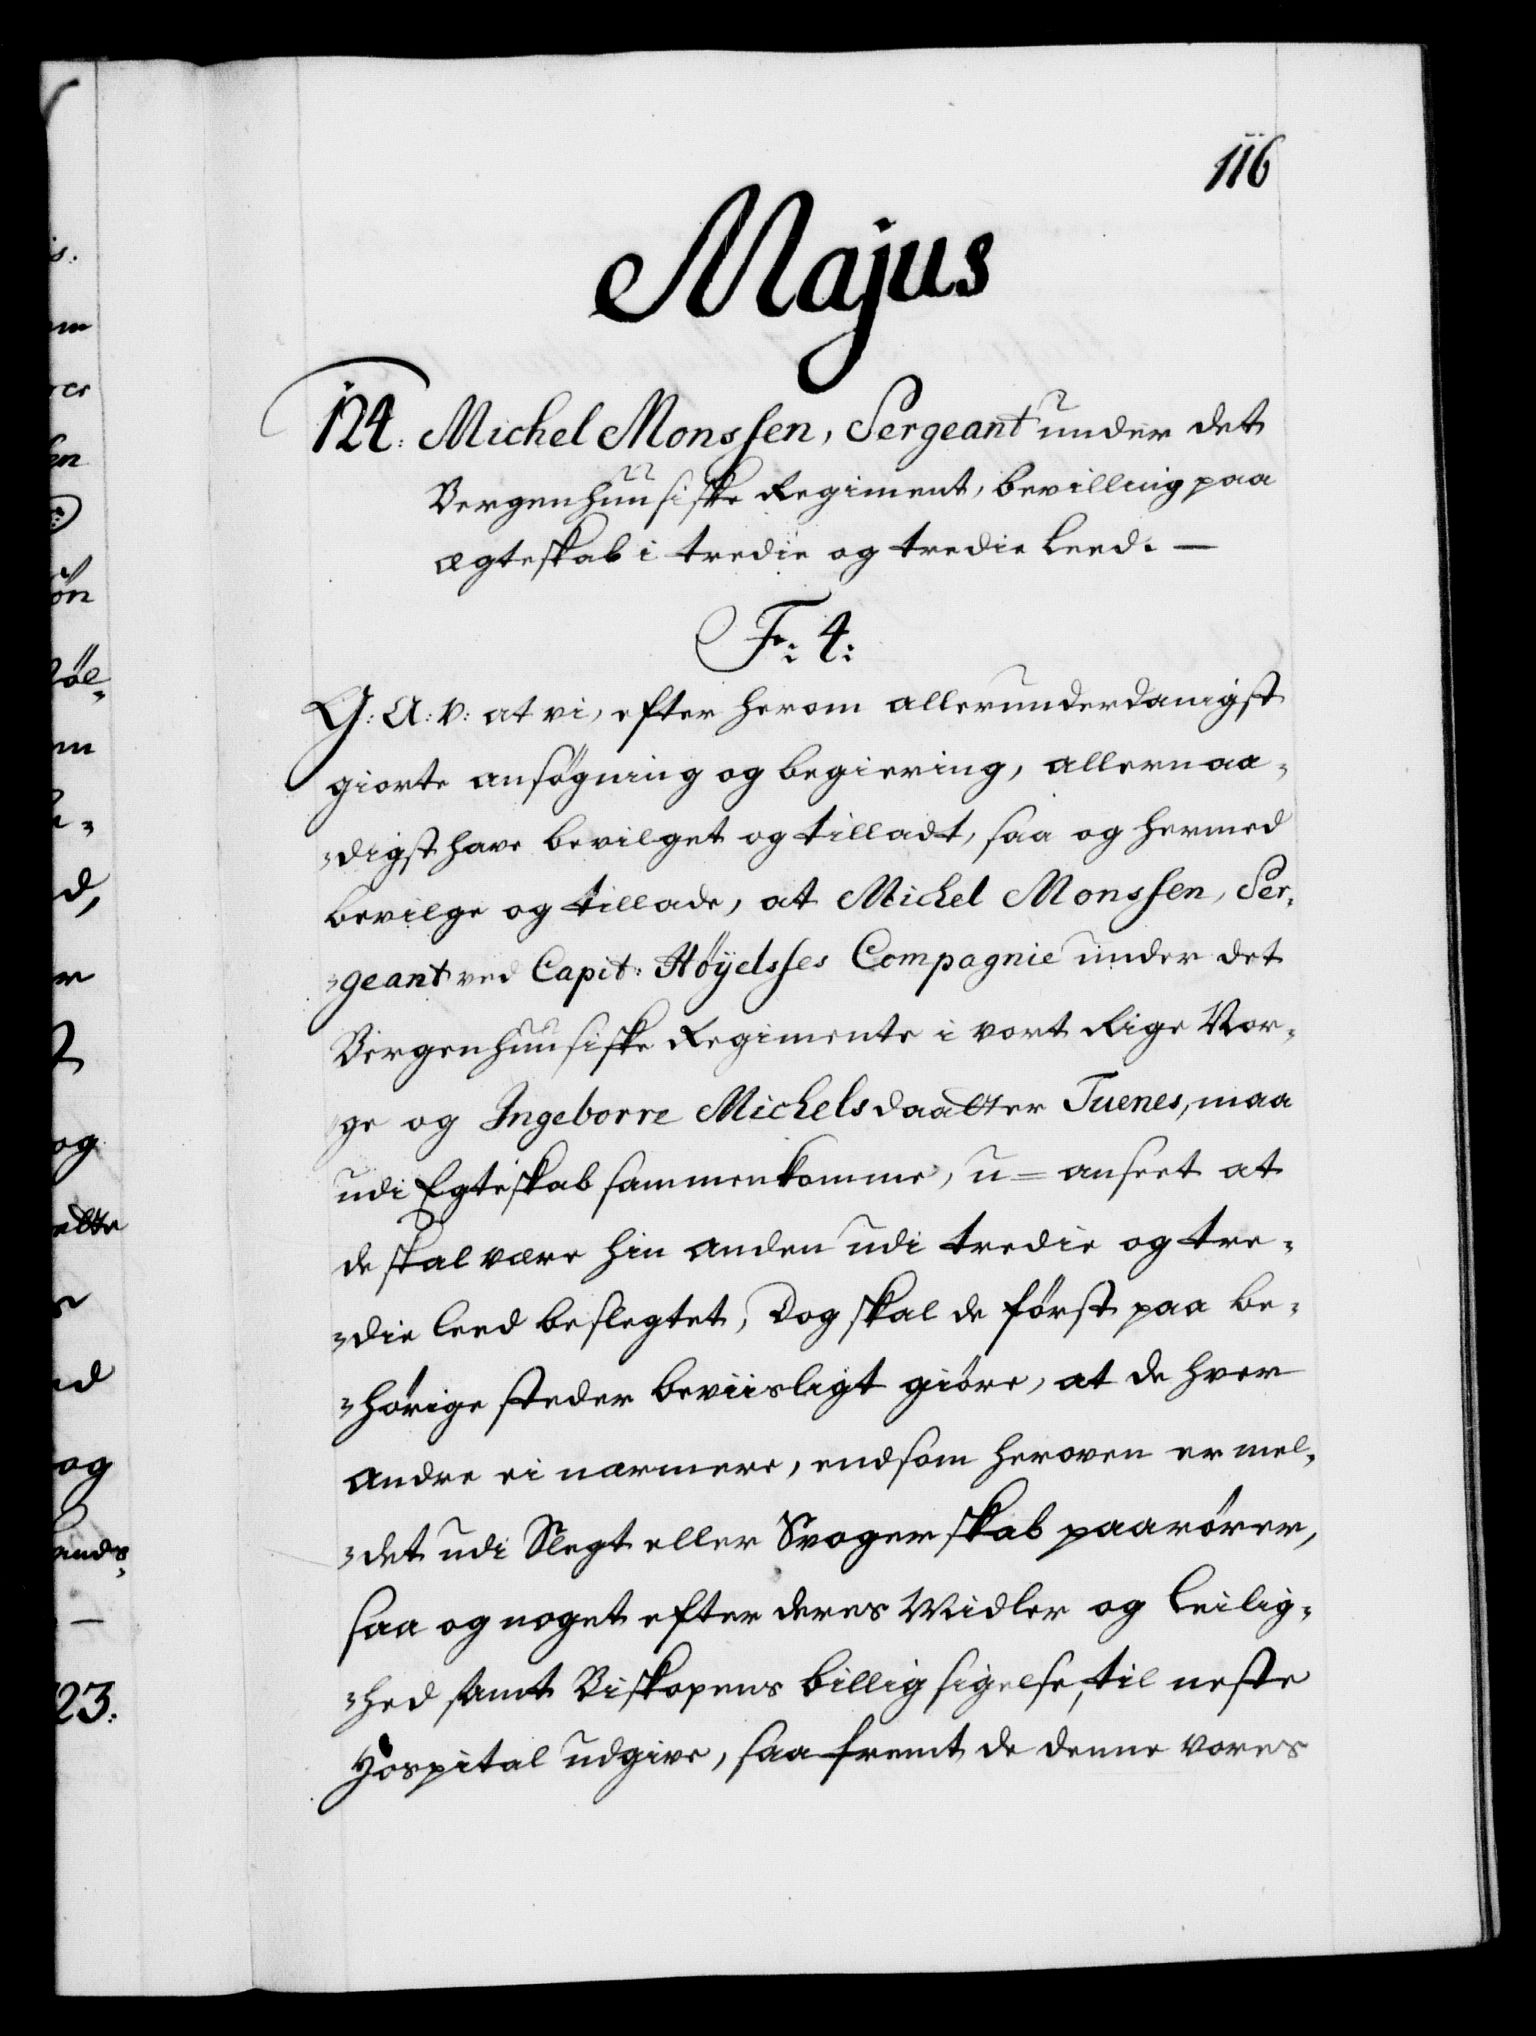 116
Majus
124. Michel Monssen, Sergeant under det
Bergenhuusiske Regiment, bevilling paa
ægteskab i tredie og tredie Leed. —
Fr: 4:
G: A: V: at vi, efter herom allerunderdanigst
giorte ansøgning og begiering, allernaa-
digst have bevilget og tilladt, saa og hermed
bevilge og tillade, at Michel Monssen, Ser-
geant ved Capit: Höyelsses Compagnie under det
Bergenhuusiske Regimente i vort Rige Nor-
ge og Ingeborre Michelsdaatter Tuenes, maa
udi Egteskab sammenkomme, u=anseet at
de skal være hin anden udi tredie og tre-
die leed beslegtet, Dog skal de först paa be-
hørige steder beviisligt giöre, at de hver
andre ei nærmere, end som heroven er mel-
det udi Slegt eller Svogerskab paarører,
saa og noget efter deres Midler og Leilig-
hed samt Biskopens billigsigelse, til neste
Hospital udgive, saafremt de denne vores